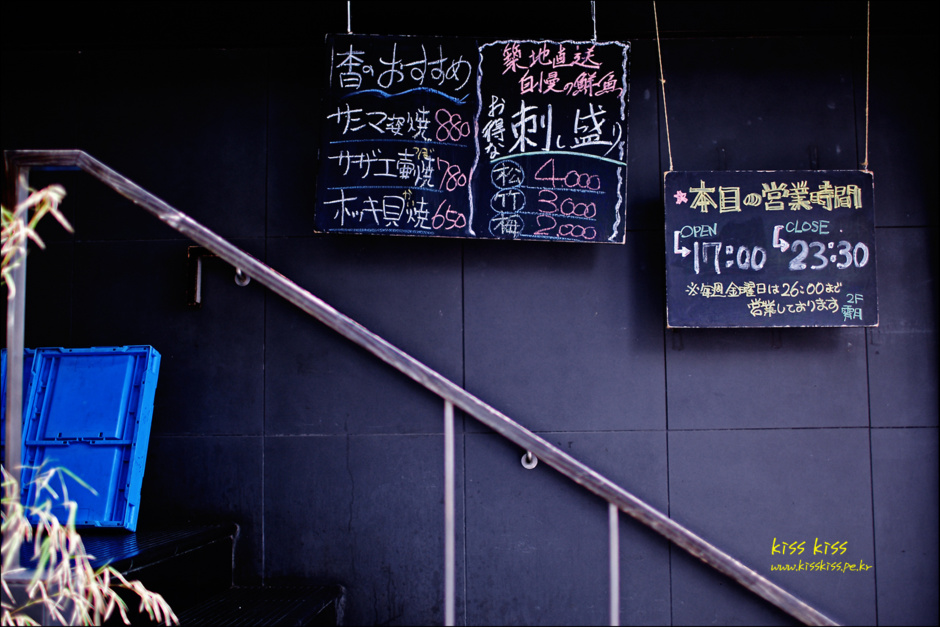 本日のおすすめ
サンマ姿焼 880
サザエ壷焼 780
ホッキ貝焼 650
築地直送
自慢の鮮魚
お得な
刺し盛り
松 4.000
竹 3.000
梅 2.000
本日の営業時間
OPEN
17:00
CLOSE.
23:30
※毎週金曜日は26:00まで
営業しております
2F
kiss kiss
www.kisskiss.pe.kr